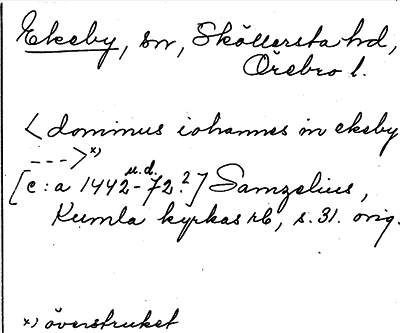 Ekeby, sn, Sköllersta hd,
Örebro l.
< dominus iohannes in ekeby
--->x)
[c:a 1442-72 u.d.?] Samzelius,
Kumla kyrkas rb, s. 31. orig.
x) överstruket